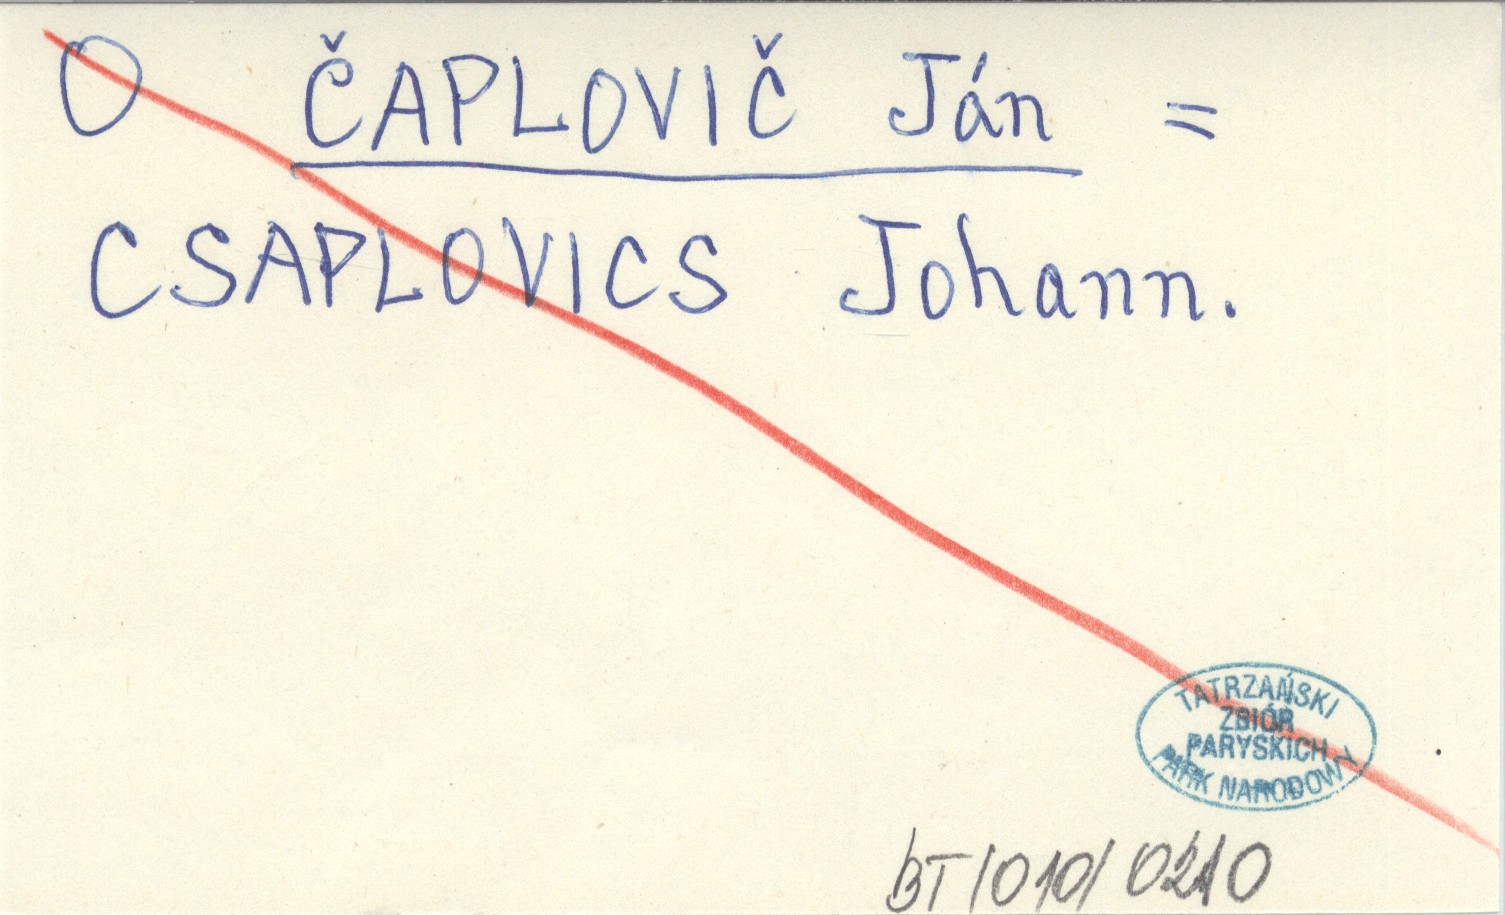 O ČAPLOVIČ Ján =
CSAPLOVICS Johann.
TATRZAŃSKI
ZBIÓR
PARYSKICH
PARK NARODOWY
BT/010/0210